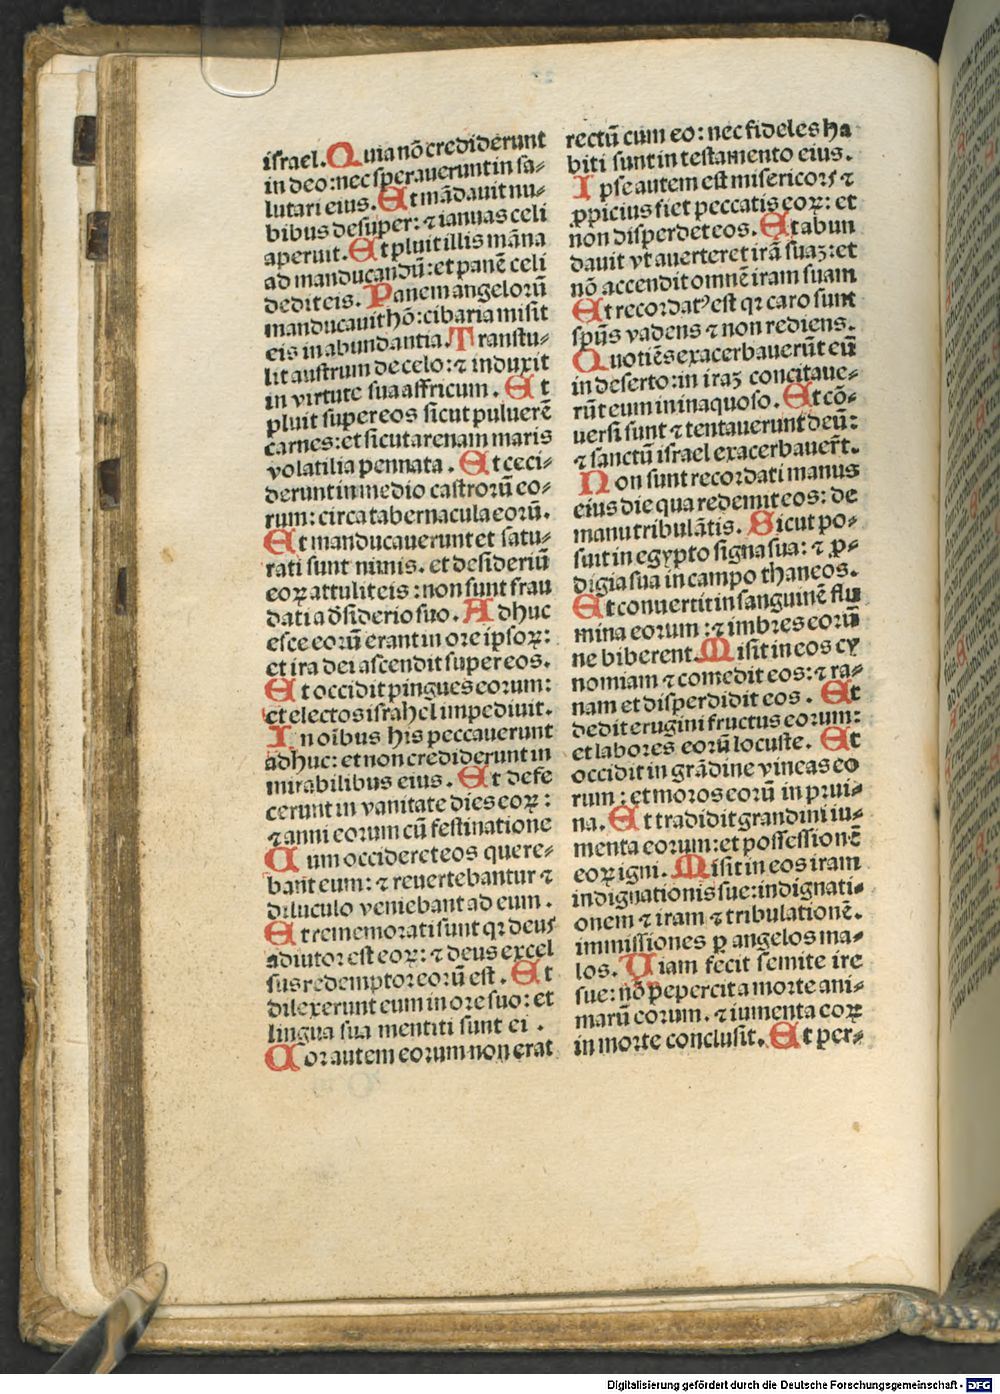 israel. Quia nō crediderunt
in deo: nec sperauerunt in sa-
lutari eius. Et mādauit nu-
bibus desuper: ⁊ ianuas celi
aperuit. Et pluit illis māna
ad manducandū: et panē celi
dedit eis. Panem angelorū
manducauit hō: cibaria misit
eis in abundantia. Transtu-
lit austrum de celo: ⁊ induxit
in virtute sua affricum. Et
pluit super eos sicut puluerē
carnes: et sicut arenam maris
volatilia pennata. Et ceci-
derunt in medio castrorū eo-
rum: circa tabernacula eorū.
Et manducauerunt et satu-
rati sunt nimis. et desideriū
eoꝝ attulit eis: non sunt frau
dati a dsiderio suo. Adhuc
esce eorū erant in ore ipsoꝝ:
et ira dei ascendit super eos.
Et occidit pingues eorum:
et electos israhel impediuit.
In oībus his peccauerunt
adhuc: et non crediderunt in
mirabilibus eius. Et defe
cerunt in vanitate dies eoꝝ:
⁊ anni eorum cū festinatione
Cum occideret eos quere-
bant eum: ⁊ reuertebantur ⁊
diluculo veniebant ad eum.
Et rememorati sunt qꝛ deus
adiutor est eoꝝ: ⁊ deus excel
sus redemptor eorū est. Et
dilexerunt eum in ore suo: et
lingua sua mentiti sunt ei.
Cor autem eorum non erat
rectū cum eo: nec fideles ha
biti sunt in testamento eius.
Ipse autem est misericors ⁊
ꝓpicius fiet peccatis eoꝝ: et
non disperdet eos. Et abun
dauit vt auerteret irā suaꝫ: et
nō accendit omnē iram suam
Et recordatꝰ est qꝛ caro sunt
spūs vadens ⁊ non rediens.
Quotiēs exacerbauerūt eū
in deserto: in iraꝫ concitaue-
rūt eum in inaquoso. Et cō-
uersi sunt ⁊ tentauerunt deū:
⁊ sanctū israel exacerbauer̄t.
Non sunt recordati manus
eius die qua redemit eos: de
manu tribulātis. Sicut po-
suit in egypto signa sua: ⁊ ꝓ-
digia sua in campo thaneos.
Et conuertit in sanguinē flu
mina eorum: ⁊ imbres eorū
ne biberent. Misit in eos cy
nomiam ⁊ comedit eos: ⁊ ra-
nam et disperdidit eos. Et
dedit erugini fructus eorum:
et labores eorū locuste. Et
occidit in grādine vineas eo
rum: et moros eorū in prui-
na. Et tradidit grandini iu-
menta eorum: et possessionē
eoꝝ igni. Misit in eos iram
indignationis sue: indignati-
onem ⁊ iram ⁊ tribulationē.
immissiones ꝑ angelos ma-
los. Uiam fecit semite ire
sue: nō pepercit a morte ani-
marū eorum. ⁊ iumenta eoꝝ
in morte conclusit. Et per-
Digitalisierung gefördert durch die Deutsche Forschungsgemeinschaft - DFG